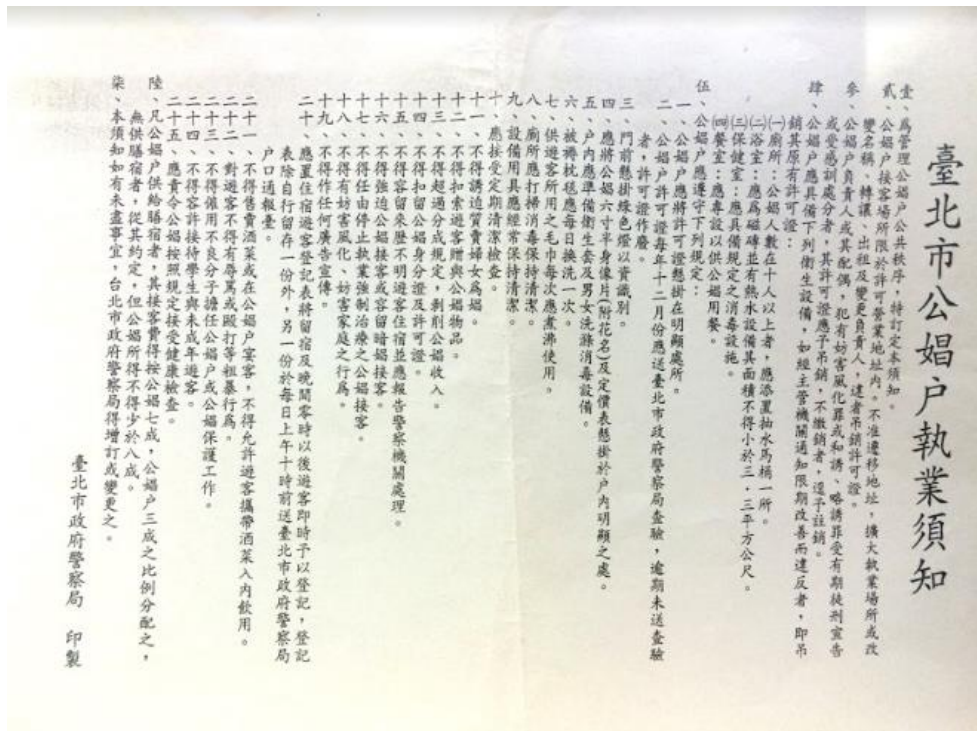 臺北市公娼户執業須知
壹、為管理公娼户公共秩序，特訂定本須知。
貳、公娼户接客場所限於許可營業地址內。不准遷移地址，擴大執業場所或改
變名稱、轉讓、出租及變更負責人，違者吊銷許可證。
參、公娼户負責人或其配偶，犯有妨害風化罪或和誘、略誘罪受有期徒刑宣告
或受感訓處分者，其許可證應予吊銷，不繳銷者，逕予註銷。
肆、公娼户應具備下列衛生設備，如經主管機關通知限期改善而違反者，即吊
銷其原有許可證：
㈠廁所：公娼人數在十人以上者，應添置抽水馬桶一所。
㈡浴室：應為磁磚並有熱水設備其面積不得小於三，三平方公尺。
㈢保健室：應具備規定之消毒設施。
㈣餐室：應專設以供公娼用餐。
伍、公娼户應遵守下列規定：
一、公娼户應將許可證懸掛在明顯處所。
二、公娼户許可證每年十二月份應送臺北市政府警察局查驗，逾期未送查驗
者，許可證作廢。
三、門前懸掛綠色燈以資識別。
四、應將公娼六寸半身像片(附花名)及定價表懸掛於户內明顯之處。
五、户內應準備衛生套及男女洗滌消毒設備
六、被褥枕毯應每日換洗一次。
七、供遊客所用之毛巾每次應煮沸使用。
八、廁所應打掃消毒保持清潔。
九、設備用具應經常保持清潔。
十、應接受定期清潔檢查。
十一、不得誘迫質賣婦女為娼。
十二、不得扣索遊客贈與公娼物品。
十三、不得超過分成規定，剝削公娼收入。
十四、不得扣留公娼身分證及許可證。
十五、不得容留來歷不明遊客住宿並應報告警察機關處理。
十六、不得強迫公娼接客或容留暗娼接客。
十七、不得任由停止執業強制治療之公娼接客。
十八、不得有妨害風化、妨害家庭之行為。
十九、不得作任何廣告宣傳。
二十、應置住宿遊客登記表將留宿及晚間零時以後遊客即時予以登記，登記
表除自行留存一份外，另一份於每日上午十時前送臺北市政府警察局
户口通報臺。
二十一、不得售賣酒菜或在公娼户宴客，不得允許遊客攜帶酒菜入內飲用。
二十二、對遊客不得有辱罵或毆打等粗暴行為。
二十三、不得僱用不良分子擔任公娼户或公娼保護工作。
二十四、不得容許接待學生與未成年遊客。
二十五、應責令公娼按照規定接受健康檢查。
陸、凡公娼户供給膳宿者，其接客費得按公娼七成，公娼户三成之比例分配之，
無供膳宿者，從其約定，但公娼所得不得少於八成。
柒、本須知如有未盡事宜，台北市政府警察局得增訂或變更之。
臺北市政府警察局 印製